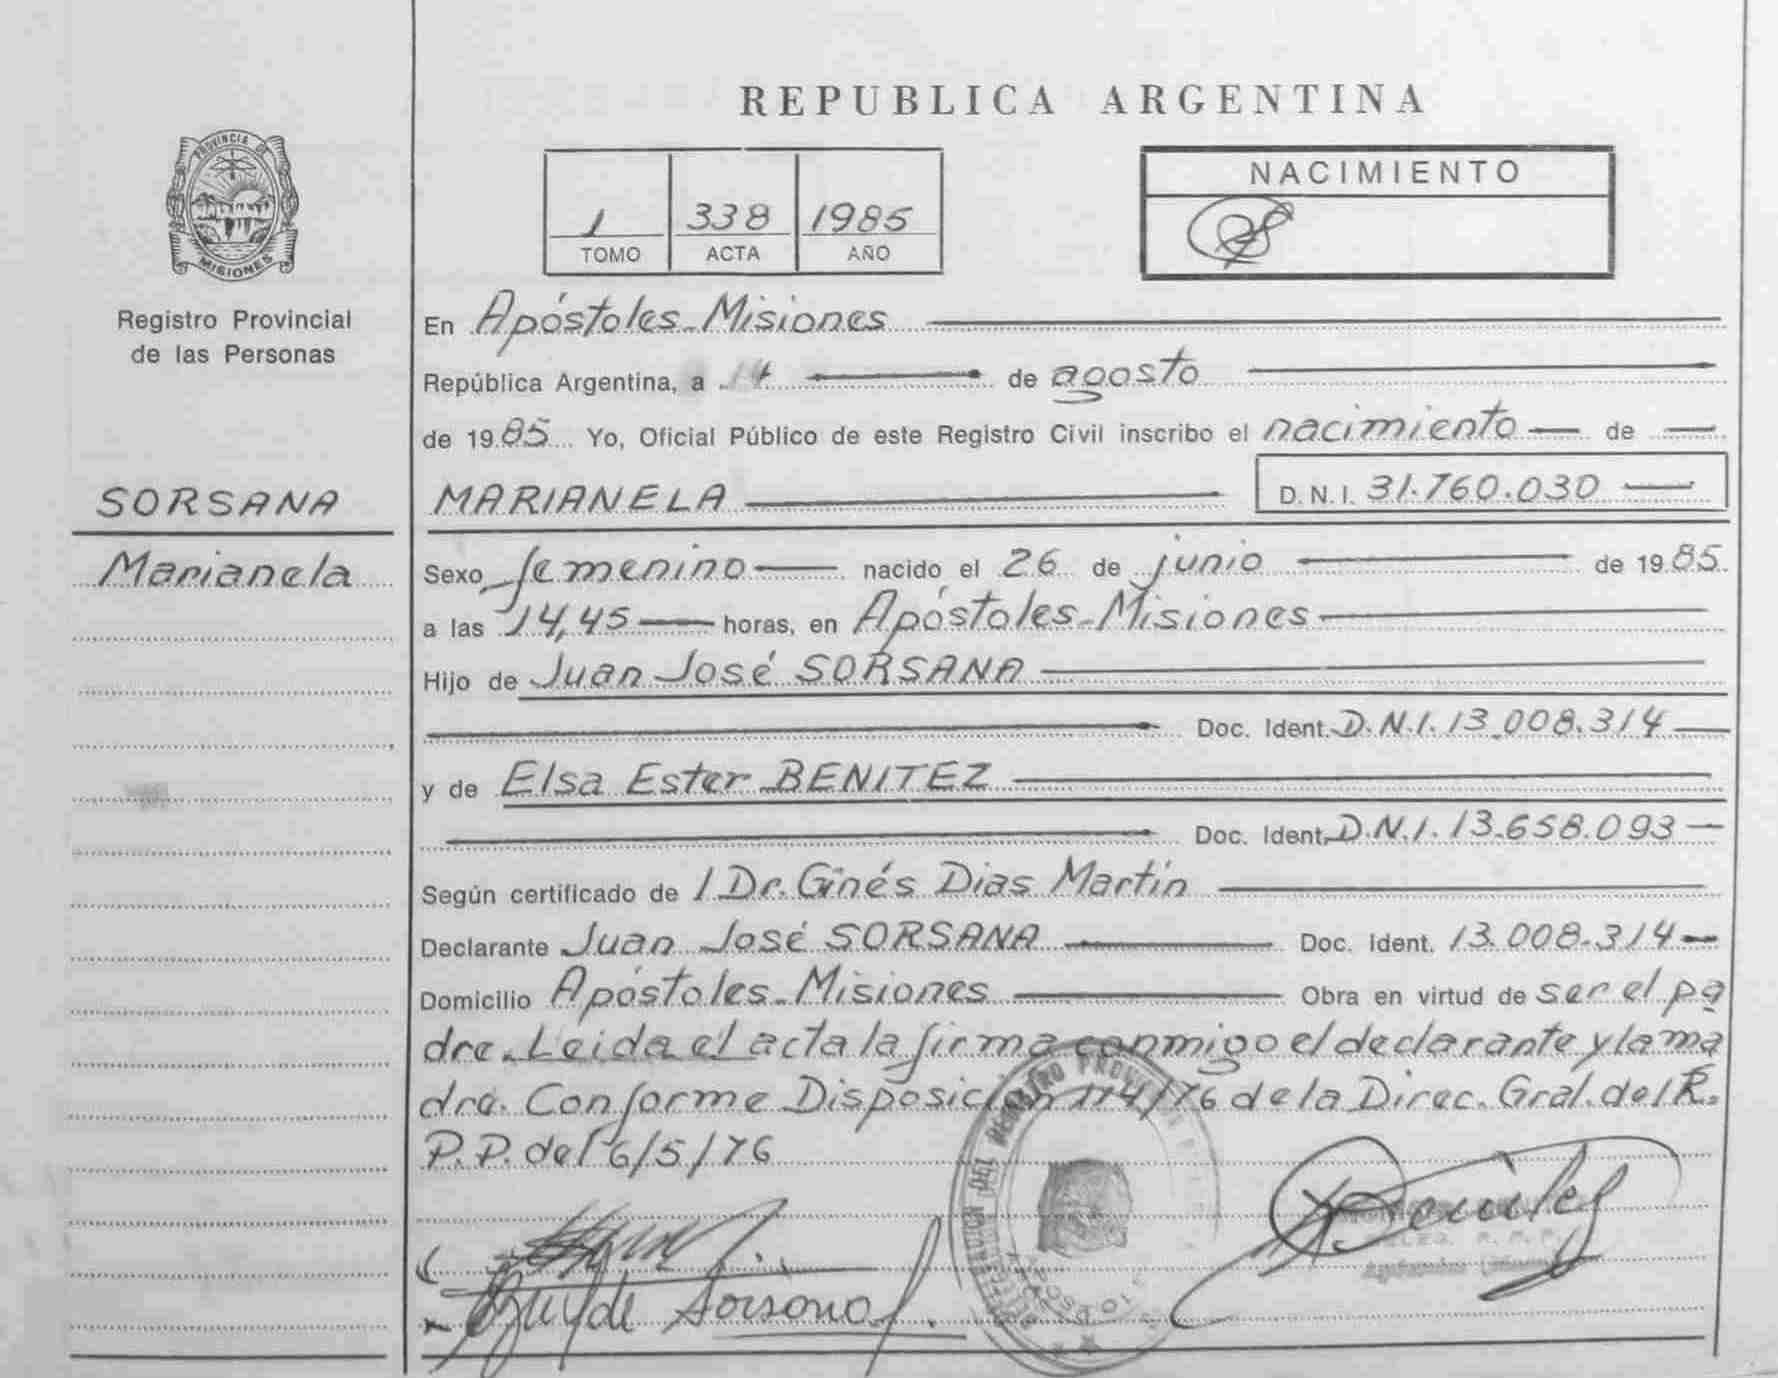 REPUBLICA ARGENTINA
PROVINCIA DE
MISIONES
Registro Provincial
de las Personas
1 338 1985
TOMO ACTA AÑO
NACIMIENTO
En Apóstoles_Misiones
República Argentina, a 14 de agosto
de 1985 Yo, Oficial Público de este Registro Civil inscribo el nacimiento de
SORSANA
Marianela
MARIANELA D.N.I. 31.760.030
Sexo femenino nacido el 26 de junio de 1985
a las 14,45 horas, en Apóstoles_Misiones
Hijo de Juan José SORSANA
Doc. Ident. D.N.I. 13.008.314
y de Elsa Ester BENITEZ
Doc. Ident. D.N.I. 13.658.093
Según certificado de 1 Dr. Ginés Dias Martín
Declarante Juan José SORSANA Doc. Ident. 13.008.314
Domicilio Apóstoles_Misiones Obra en virtud de ser el pa
dre. Leida el acta la firma conmigo el declarante y la ma
dre. Conforme Disposición 114/76 de la Direc. Gral. del R.
P.P. del 6/5/76
de Sorsana